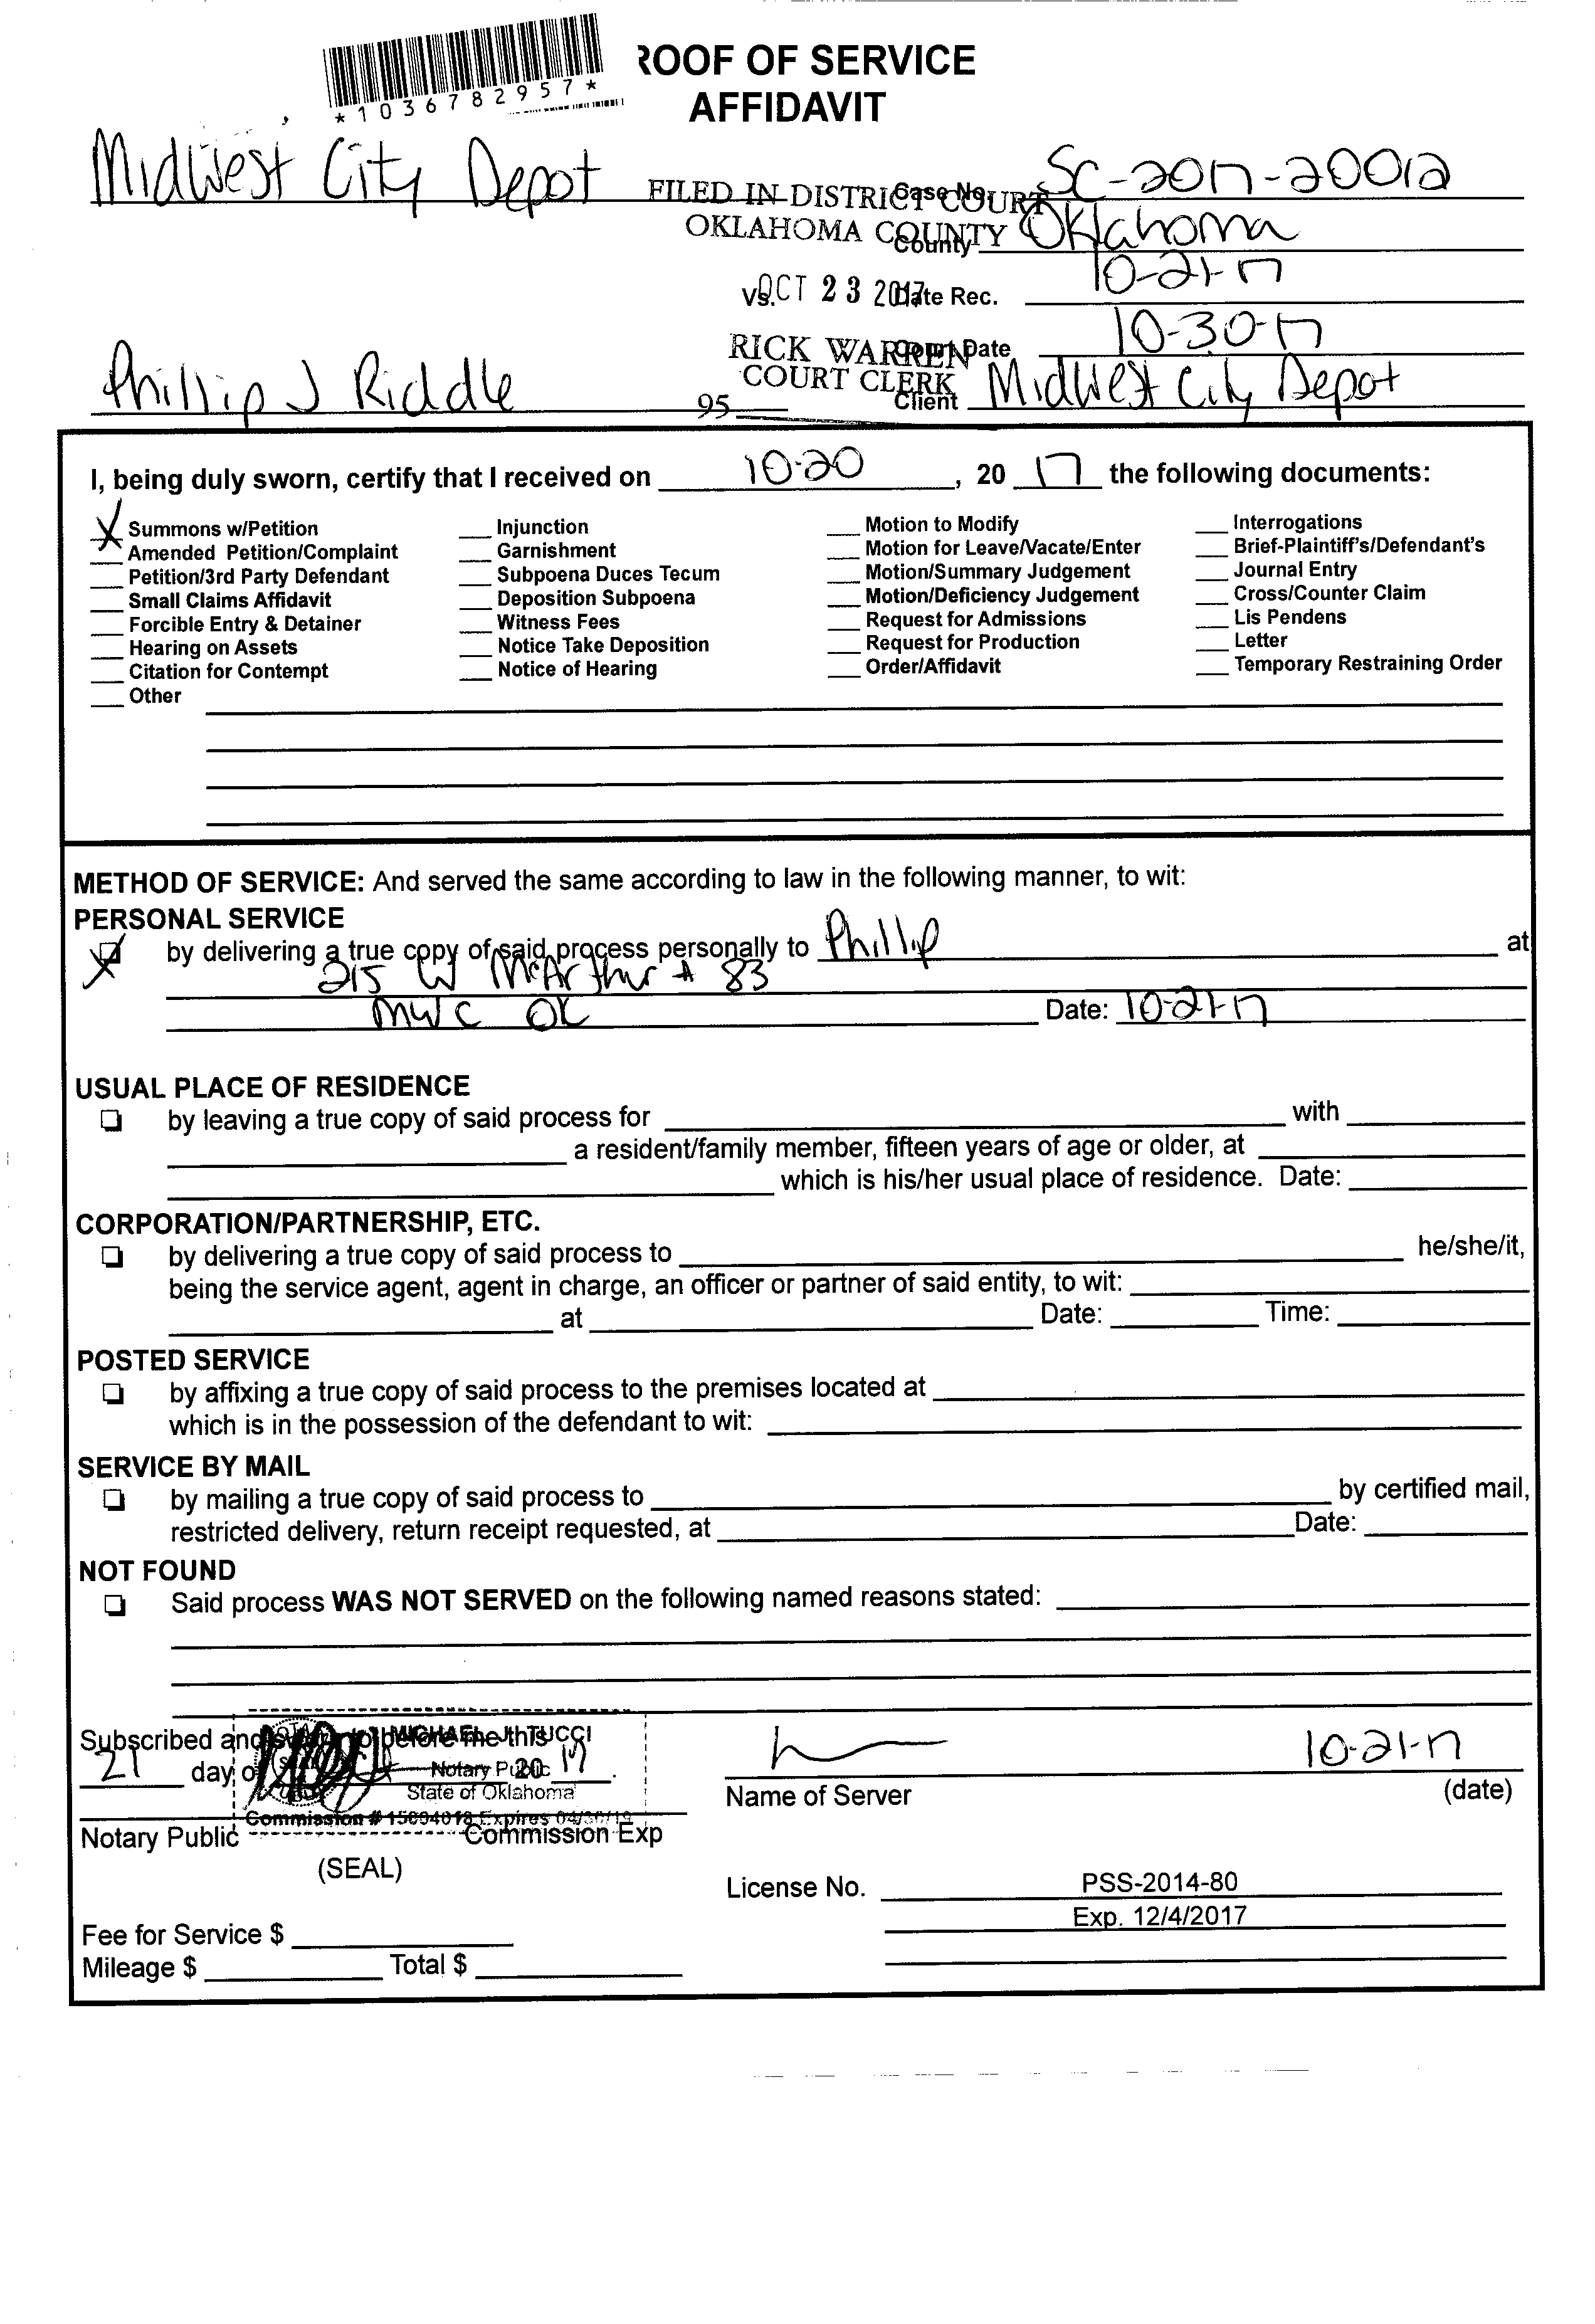 *1036782957*
ROOF OF SERVICE
AFFIDAVIT
Midwest City Depot
FILED IN DISTRICT COURT
OKLAHOMA COUNTY
OCT 23 2017
RICK WARREN
COURT CLERK
95
Case No. SC-2017-20012
County Oklahoma
Vs.
Date Rec. 10-21-17
Court Date 10-30-17
Phillip J Riddle
Client Midwest City Depot
I, being duly sworn, certify that I received on 10-20, 20 17 the following documents:
X Summons w/Petition
Amended Petition/Complaint
Petition/3rd Party Defendant
Small Claims Affidavit
Forcible Entry & Detainer
Hearing on Assets
Citation for Contempt
Other
Injunction
Garnishment
Subpoena Duces Tecum
Deposition Subpoena
Witness Fees
Notice Take Deposition
Notice of Hearing
Motion to Modify
Motion for Leave/Vacate/Enter
Motion/Summary Judgement
Motion/Deficiency Judgement
Request for Admissions
Request for Production
Order/Affidavit
Interrogations
Brief-Plaintiff's/Defendant's
Journal Entry
Cross/Counter Claim
Lis Pendens
Letter
Temporary Restraining Order
METHOD OF SERVICE: And served the same according to law in the following manner, to wit:
PERSONAL SERVICE
X by delivering a true copy of said process personally to Phillip at
215 W McArthur # 83
MWC OK Date: 10-21-17
USUAL PLACE OF RESIDENCE
by leaving a true copy of said process for with
a resident/family member, fifteen years of age or older, at
which is his/her usual place of residence. Date:
CORPORATION/PARTNERSHIP, ETC.
by delivering a true copy of said process to he/she/it,
being the service agent, agent in charge, an officer or partner of said entity, to wit:
at Date: Time:
POSTED SERVICE
by affixing a true copy of said process to the premises located at
which is in the possession of the defendant to wit:
SERVICE BY MAIL
by mailing a true copy of said process to by certified mail,
restricted delivery, return receipt requested, at Date:
NOT FOUND
Said process WAS NOT SERVED on the following named reasons stated:
Subscribed and sworn to before me this
21 day of 20 17.
MICHAEL J. TUCCI
Notary Public
State of Oklahoma
Commission # Expires
Notary Public Commission Exp
(SEAL)
10-21-17
Name of Server (date)
License No. PSS-2014-80
Exp. 12/4/2017
Fee for Service $
Mileage $ Total $